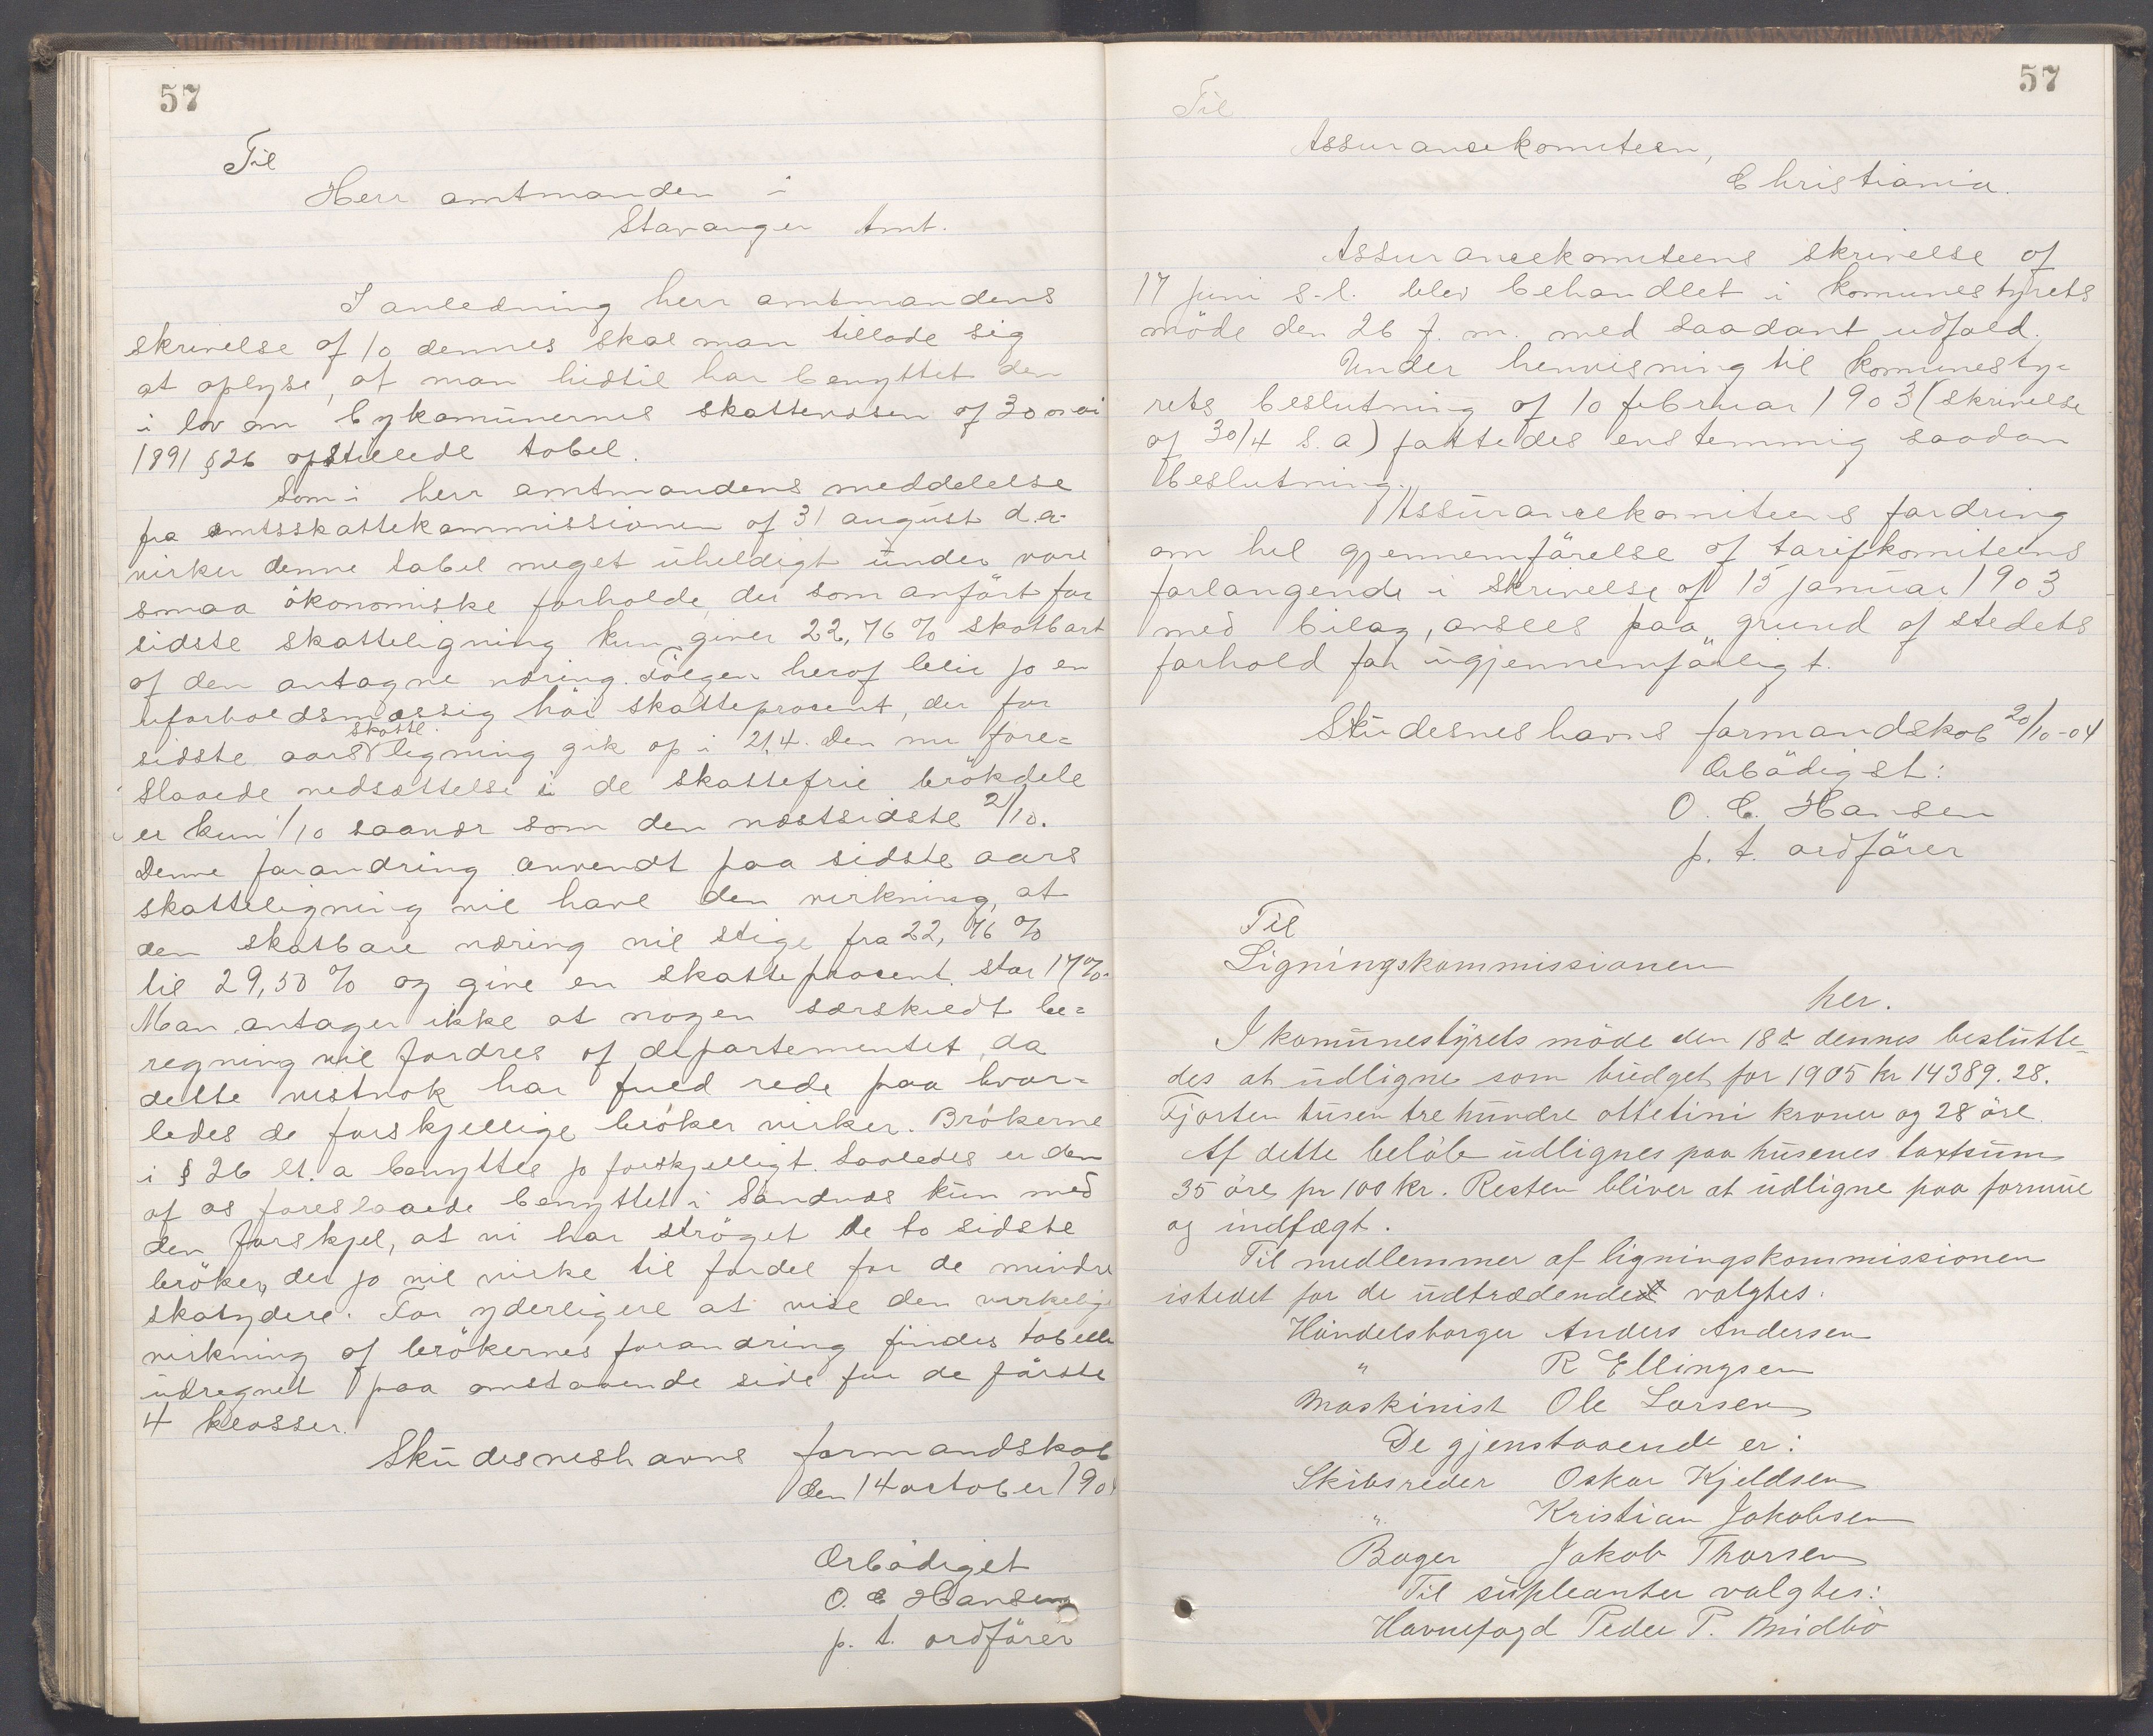 57
Til
Herr amtmanden i
Stavanger Amt.
I anledning herr amtmandens
skrivelse af 10 dennes skal man tillade sig
at oplyse, at man hidtil har benyttet den
i lov om bykomünernes skattevæsen af 30 mai
1891 § 26 opstillede tabel.
Som i herr amtmandens meddelelse
fra amtsskattekommissionen af 31 august d.a.
virker denne tabel meget üheldigt ünder vore
smaa ökonomiske forholde, der som anfört for
sidste skatteligning kun giver 22,76 % skatbart
af den antagne næring. Fölgen heraf blir jo en
uforholdsmæssig höi skatteprocent, der for
skatte
sidste aars ligning gik op i 21,4. Den nu fore=
slaaede nedsættelse i de skattefrie brökdele
er kun 1/10 saanær som den næstsidste 2/10.
Denne forandring anvendt paa sidste aars
skatteligning vil have den virkning, at
den skatbare næring vil stige fra 22,76 %
til 29,50 % og give en skatteprocent stor 17%.
Man antager ikke at nogen særskildt be=
regning vil fordres af departementet, da
dette vistnok har fuld rede paa hvor=
ledes de forskjellige bröker virker. Brökerne
i § 26 lt. a benyttes jo forskjelligt. Saaledes er den
af os foreslaaede benyttet i Sandnæs kün med
den forskjel, at vi har ströget de to sidste
bröker, der jo vil virke til fordel for de mindre
skatydere. For yderligere at vise den virkelige
virkning af brökernes forandring findes tabelle
üdregnet paa omstaaende side for de förste
4 klasser.
Sküdesneshavns formandskab
den 14 october 190
Ærbödigst
O. C Hansen
p. t. ordförer
57
Til
Assurancekomiteen,
Christiania.
Assurancekomiteens skrivelse af
17 juni s.l. blev behandlet i komunestyrets
möde den 26 f. m. med saadant udfald.
Under henvisning til komunesty=
rets beslutning af 10 februar 1903 (skrivelse
af 30/4 s.a) fattedes enstemmig saadan
beslutning.
Assürancekomiteens fordring
om hel gjennemförelse af tarifkomiteens
forlangende i skrivelse af 15 januar 1903
med bilag, ansees paa grund af stedets
forhold for ügjennemförligt.
Stüdesneshavns formandskab 20/10-04
Ærbödigst:
O. C. Hansen
p. t. ordförer
Til
Ligningskommissionen
her.
I komünestyrets möde den 18de dennes beslütte=
des at üdligne som büdget for 1905 kr 14389.28.
Fjorten tüsen tre hündre ottetini kroner og 28 öre.
Af dette belöb üdlignes paa hüsenes taxtsüm
35 öre pr 100 kr. Resten bliver at üdligne paa formüe
og indtægt.
Til medlemmer af ligningskommissionen
istedet for de üdtrædende valgtes.
Handelsborger Anders Andersen
" R Ellingsen
Maskinist Ole Larsen
De gjenstaaende er:
Skibsreder Oskar Kjeldsen
" Kristian Jakobsen
Bager Jakob Thorsen
Til süpleanter valgtes:
Havnefogd Peder P. Midbö